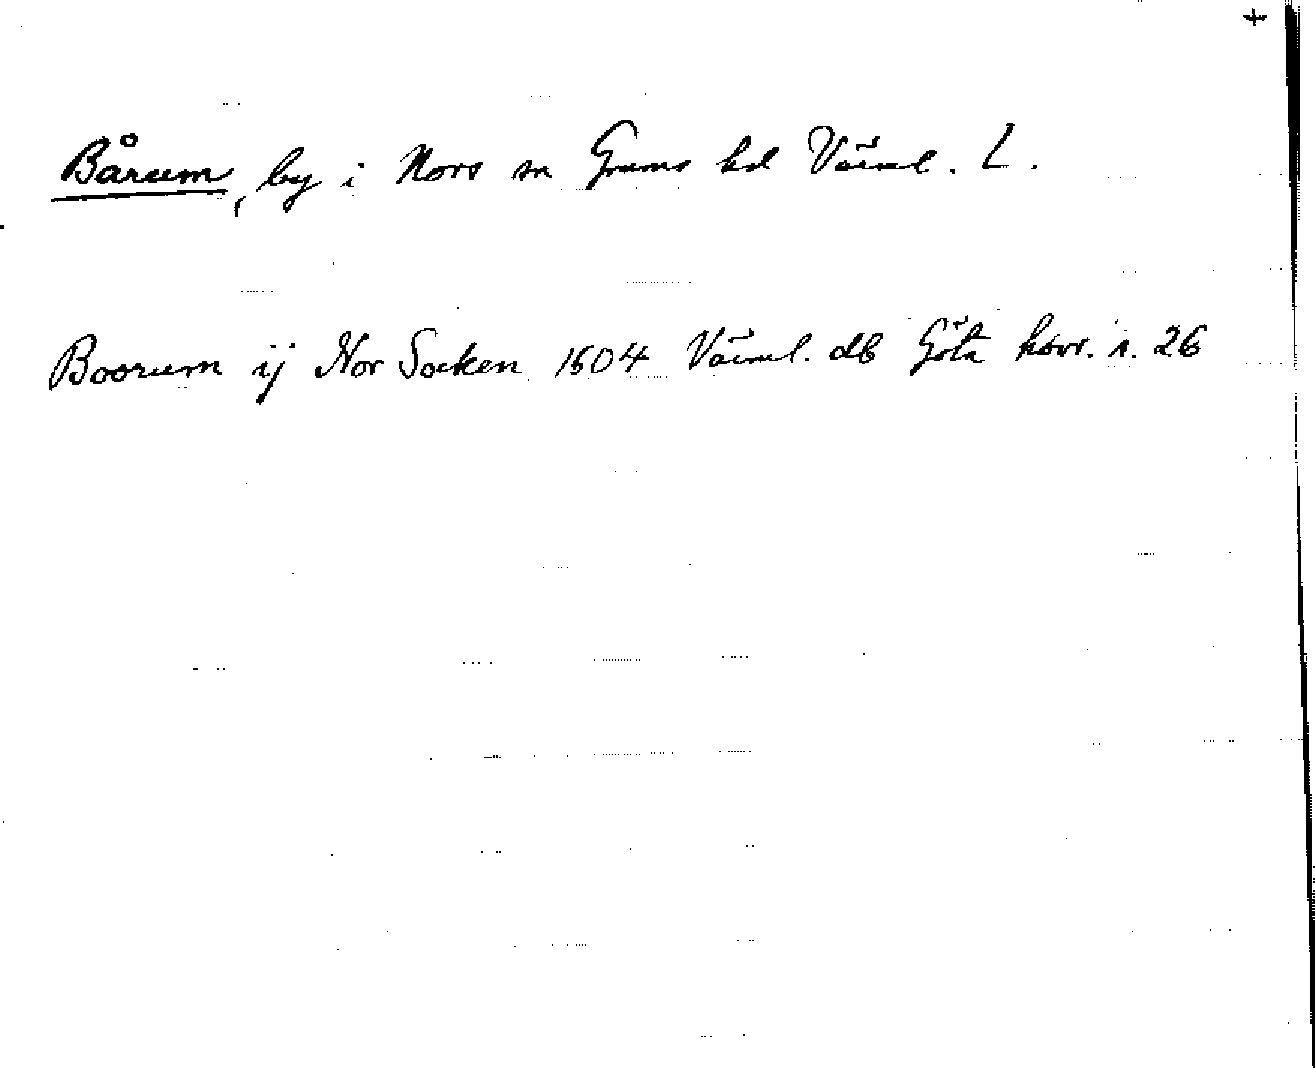 +
Bårum, by i Nors sn Grums hd Värml. L.
Boorum ij Nor Socken 1604 Värml. db Göta hovr. s. 26